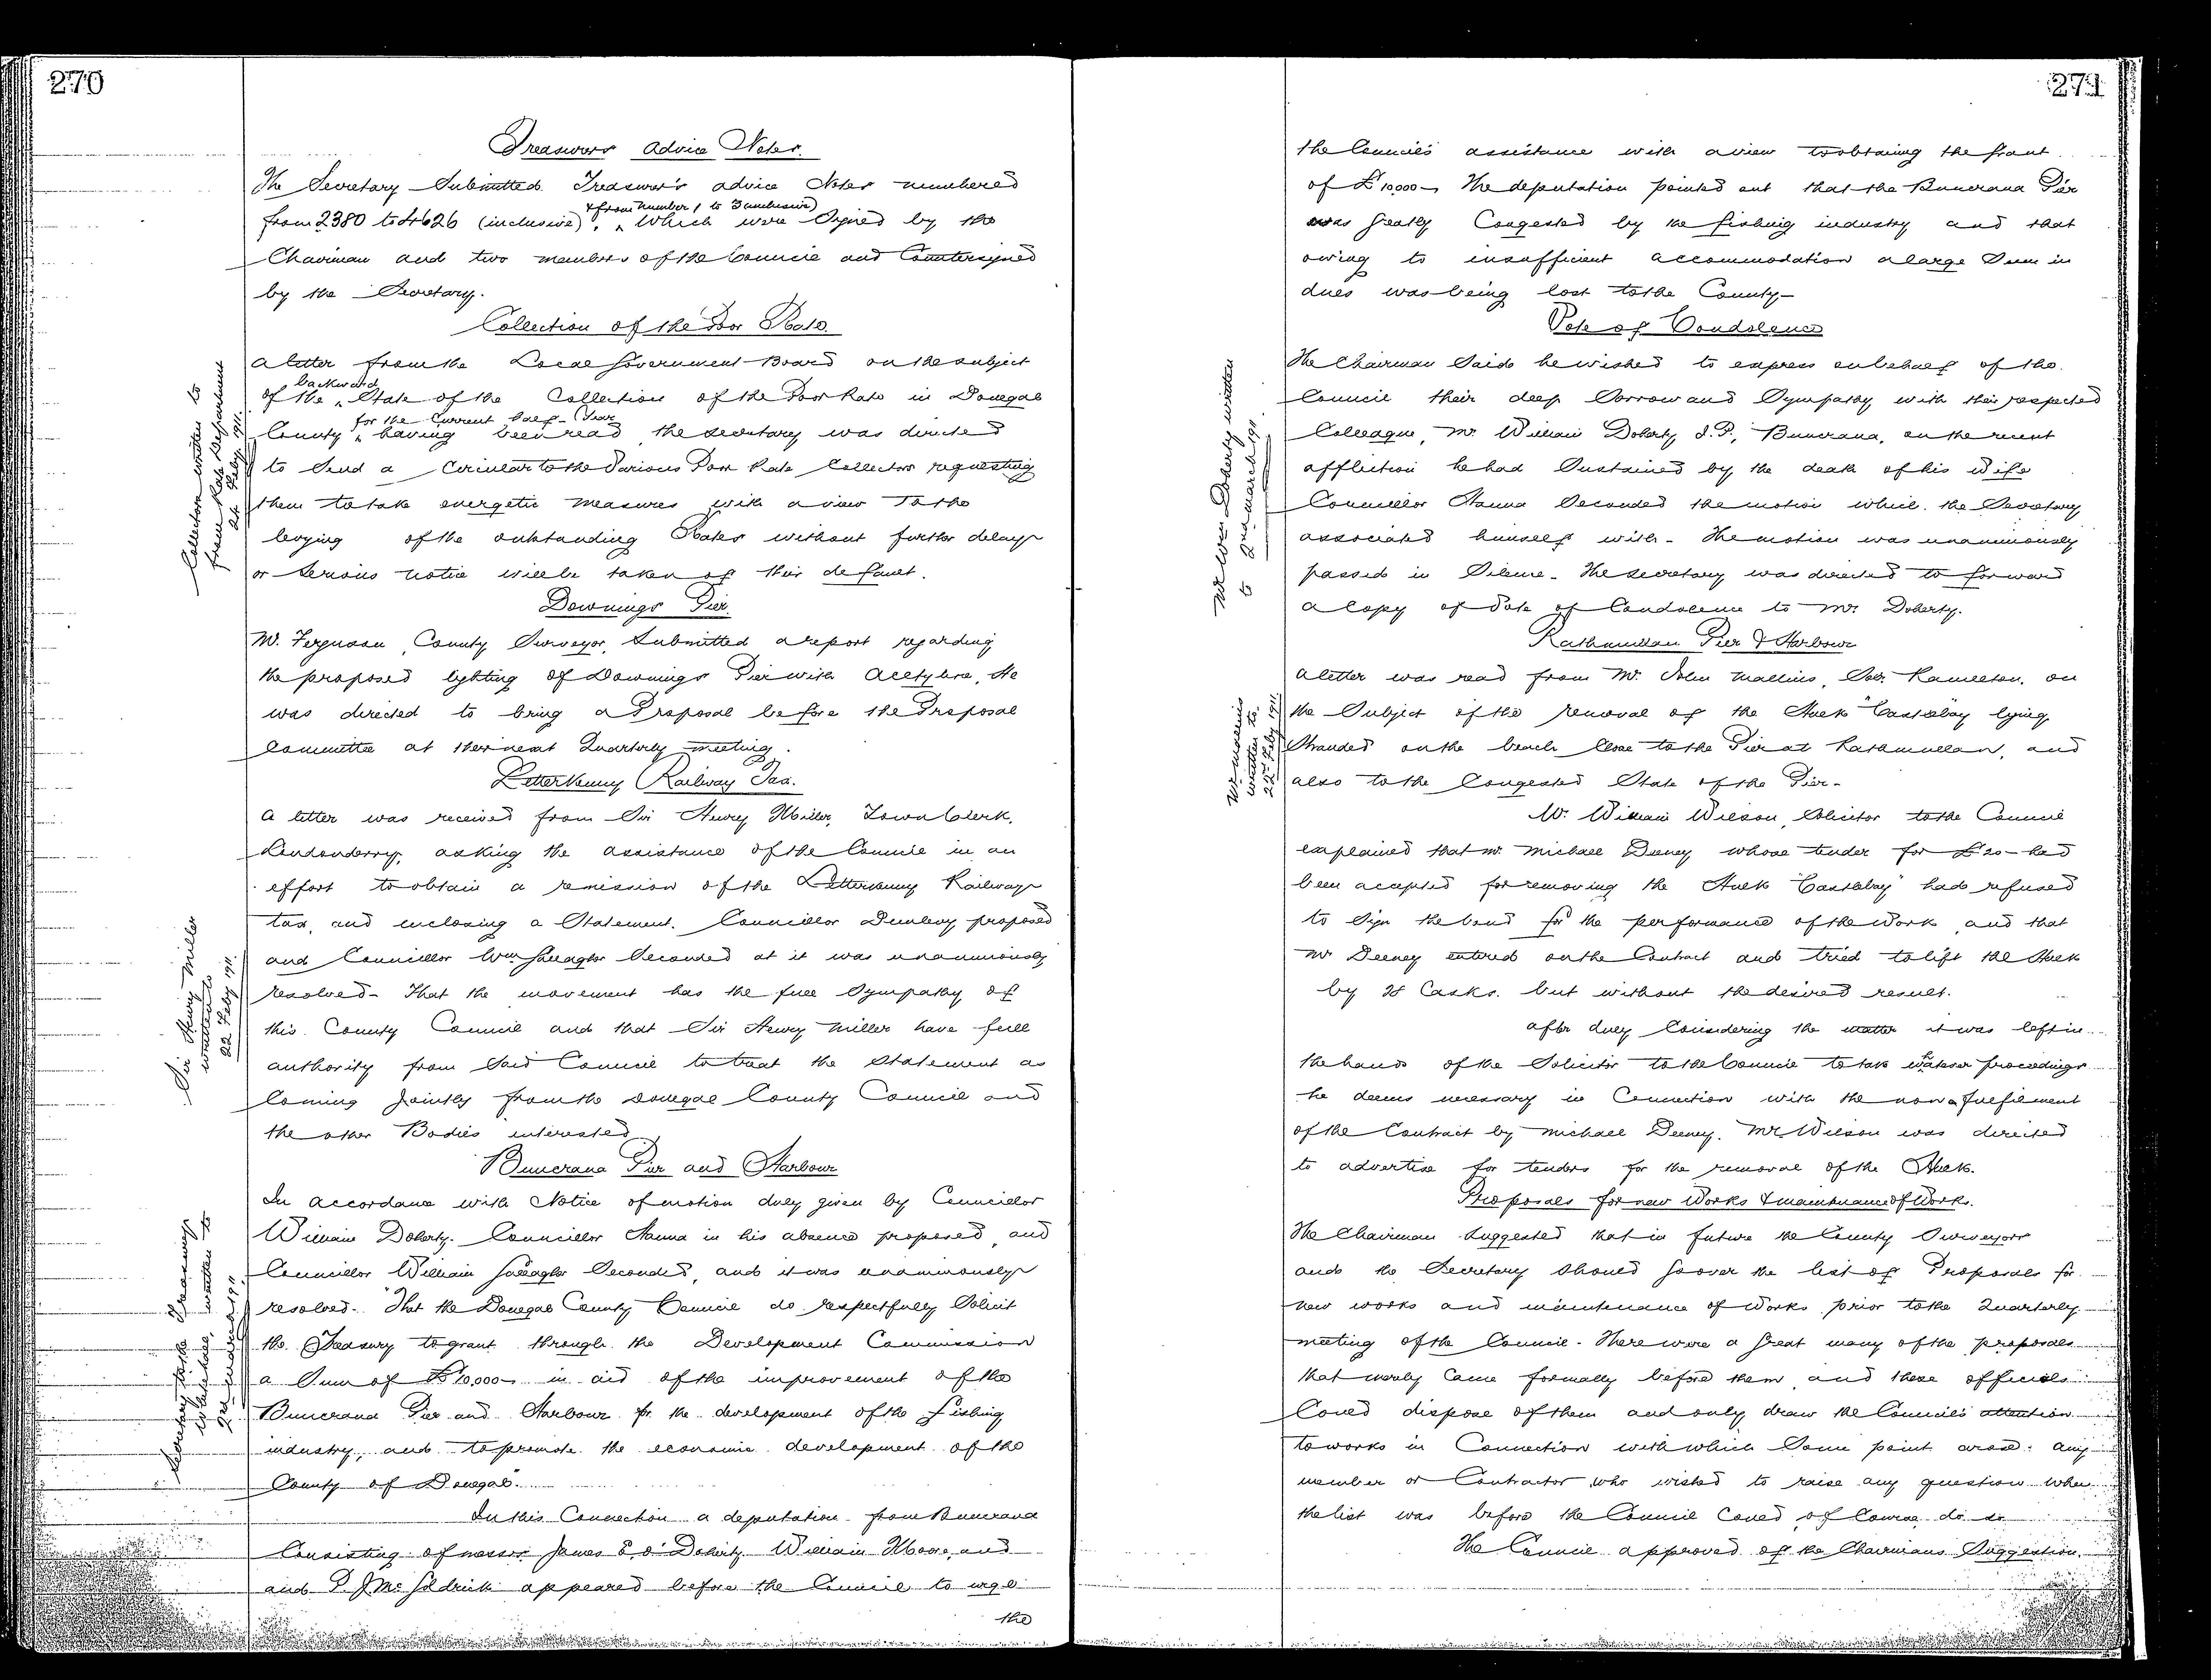 270
Treasurers Advice Notes.
The Secretary Submitted Treasurer's advice Notes numbered
& from Number 1 to 3 inclusive)
from 2380 to 4626 (inclusive), which were Signed by the
Chairman and two members of the Council and Countersigned
by the Secretary.
Collection of the Poor Rate.
Collectors written to
from Rate Department
22 Feby 1911.
A letter from the Local Government Board on the subject
backward
of the State of the Collection of the Poor Rate in Donegal
for the Current half-Year
County having been read the secretary was directed
to Send a Circular to the Various Poor Rate Collectors requesting
them to take energetic measures with a view to the
levying of the outstanding Rates without further delay
or serious notice will be taken of their default.
Downings Pier.
Mr. Ferguson, County Surveyor, Submitted a report regarding
the proposed lighting of Downings Pier with Acetylene. He
was directed to bring a Proposal before the Proposal
Committee at their next Quarterly meeting.
Letterkenny Railway Tax.
Sir Henry Miller
written to
22 Feby 1911.
A letter was received from Sir Henry Miller, Town Clerk,
Londonderry, asking the assistance of the Council in an
effort to obtain a remission of the Letterkenny Railway
tax, and enclosing a Statement. Councillor Dunlevy proposed
and Councillor Wm Gallagher Seconded at it was unanimously
resolved- That the movement has the full Sympathy of
this County Council and that Sir Henry Miller have full
authority from Said Council to treat the Statement as
Coming jointly from the Donegal County Council and
the other Bodies interested.
Buncrana Pier and Harbour
Secretary to the Treasury
Whitehall, written to
In accordance with Notice of motion duly given by Councillor
William Doherty. Councillor Hanna in his absence proposed, and
Councillor William Gallagher Seconded, and it was unanimously
resolved- "That the Donegal County Council do respectfully Solicit
the Treasury to grant through the Development Commission
a Sum of £10,000- in aid of the improvement of the
Buncrana Pier and Harbour for the development of the Fishing
industry, and to promote the economic development of the
County of Donegal".
In this Connection a deputation from Buncrana
Consisting of messrs James E. O'Doherty. William Moore, and
and P. J Mc Goldrick appeared before the Council to urge
the
271
the Council's assistance with a view to obtaining the Grant
of £10,000- The deputation pointed out that the Buncrana Pier
was greatly Congested by the fishing industry and that
owing to insufficient accommodation a large Sum in
dues was being lost to the County-
Vote of Condolence
Mr Wm Doherty written
to 2nd March 1911
The Chairman Said he wished to express on behalf of the
Council their deep Sorrow and Sympathy with their respected
Colleague, Mr. William Doherty J.P., Buncrana, on the recent
affliction he had Sustained by the death of his wife
Councillor Hanna Seconded the motion which the Secretary
associated himself with- The motion was unanimously
passed in Silence- The Secretary was directed to forward
a Copy of Vote of Condolence to Mr. Doherty.
Rathmullan Pier & Harbour
written to
22nd Feby 1911.
A letter was read from Mr. John Mallins, Solr. Ramelton, on
the Subject of the removal of the Hulk "Castlebay" lying
Stranded on the beach Close to the Pier at Rathmullan, and
also to the Congested State of the Pier-
Mr. William Wilson, Solicitor to the Council
explained that Mr. Michael Deeney whose tender for £20- had
been accepted for removing the Hulk "Castlebay" had refused
to Sign the bond for the performance of the Work, and that
Mr Deeney entered on the Contract and tried to lift the Hulk
by 28 Casks. but without the desired result.
After duly Considering the matter it was left in
the hands of the Solicitor to the Council to take whatever proceedings
he deems necessary in Connection with the non-fulfilment
of the Contract by Michael Deeney. Mr. Wilson was directed
to advertise for tenders for the removal of the Hulk.
Proposals for new Works & maintenance of Works.
The Chairman Suggested that in future the County Surveyors
and the Secretary Should go over the list of Proposals for
new works and maintenance of Works prior to the Quarterly
meeting of the Council- There were a great many of the proposals
that merely Came formally before them and these officials
Could dispose of them and only draw the Council's attention
to works in Connection with which Some point arose. Any
member or Contractor who wished to raise any question when
the list was before the Council Could, of Course, do so
The Council approved of the Chairmans Suggestion.